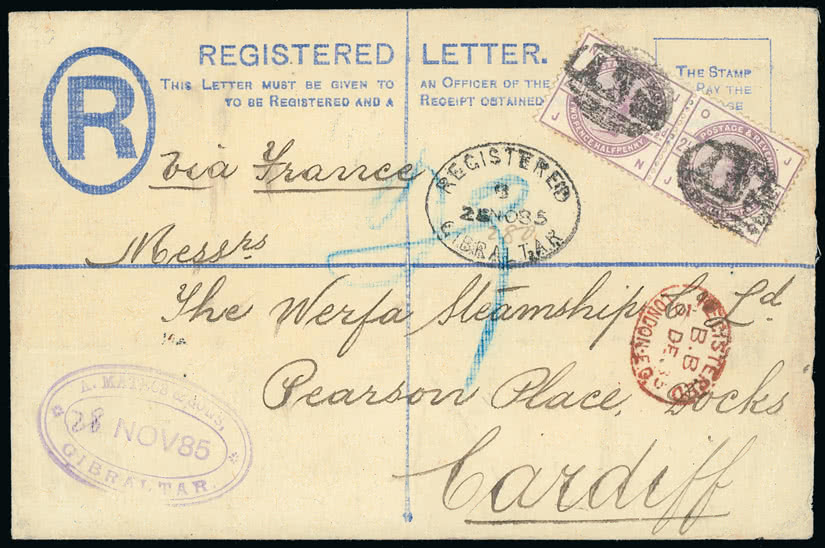 REGISTERED LETTER.
THIS LETTER MUST BE GIVEN TO AN OFFICER OF THE
TO BE REGISTERED AND A RECEIPT OBTAINED
THE STAMP
PAY THE
R
POSTAGE &
PENCE HALFPENNY
N
J
J
N
O
J
J
via France
REGISTERED
28 NO 85
GIBRALTAR
Messrs
The Werfa Steamship Co Ld
Pearson Place, Docks
Cardiff
REGISTERED
B.B
DE
LONDON.E.C.
A. MATEOS & SONS,
28 NOV 85
GIBRALTAR.